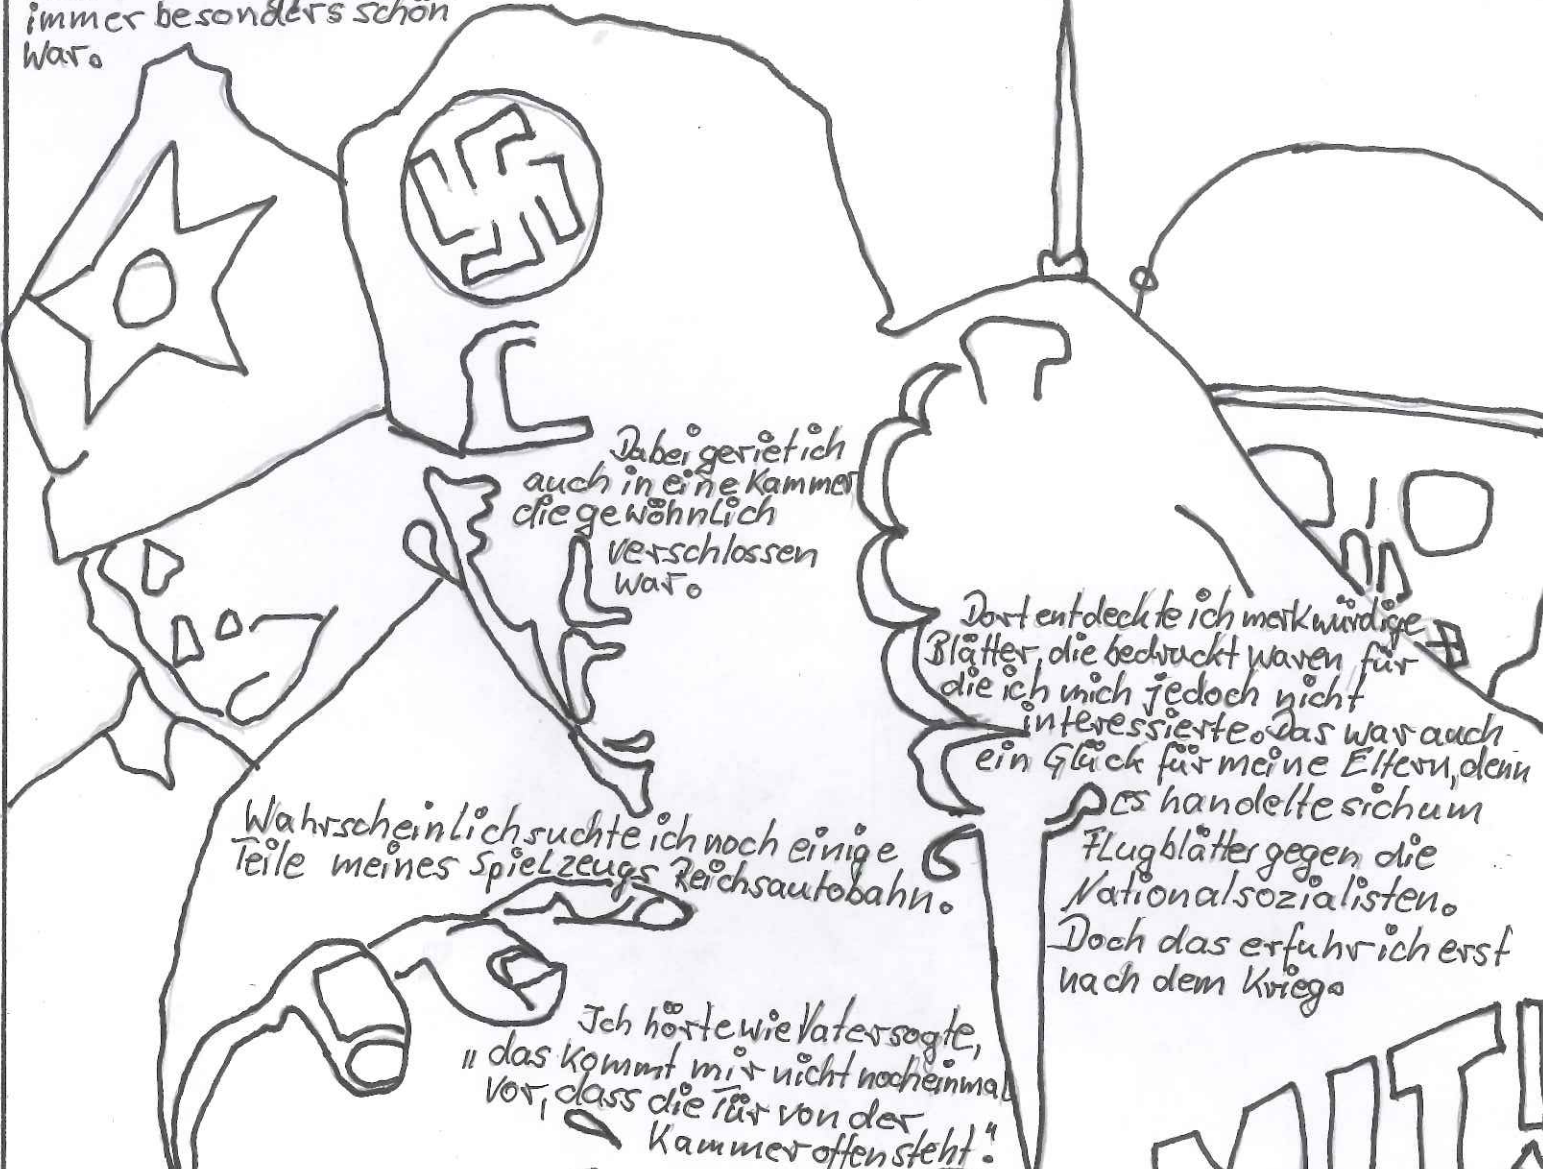 immer besonders schön
war.
Dabei geriet ich
auch in eine Kammer
die gewöhnlich
verschlossen
war.
Dort entdeckte ich merkwürdige
Blätter, die bedruckt waren für
die ich mich jedoch nicht
interessierte. Das war auch
ein Glück für meine Eltern, denn
es handelte sich um
Flugblätter gegen die
Nationalsozialisten.
Doch das erfuhr ich erst
nach dem Krieg.
Wahrscheinlich suchte ich noch einige
Teile meines Spielzeugs Reichsautobahn.
Ich hörte wie Vater sagte,
"das kommt mir nicht nocheinmal
vor, dass die Tür von der
Kammer offen steht".